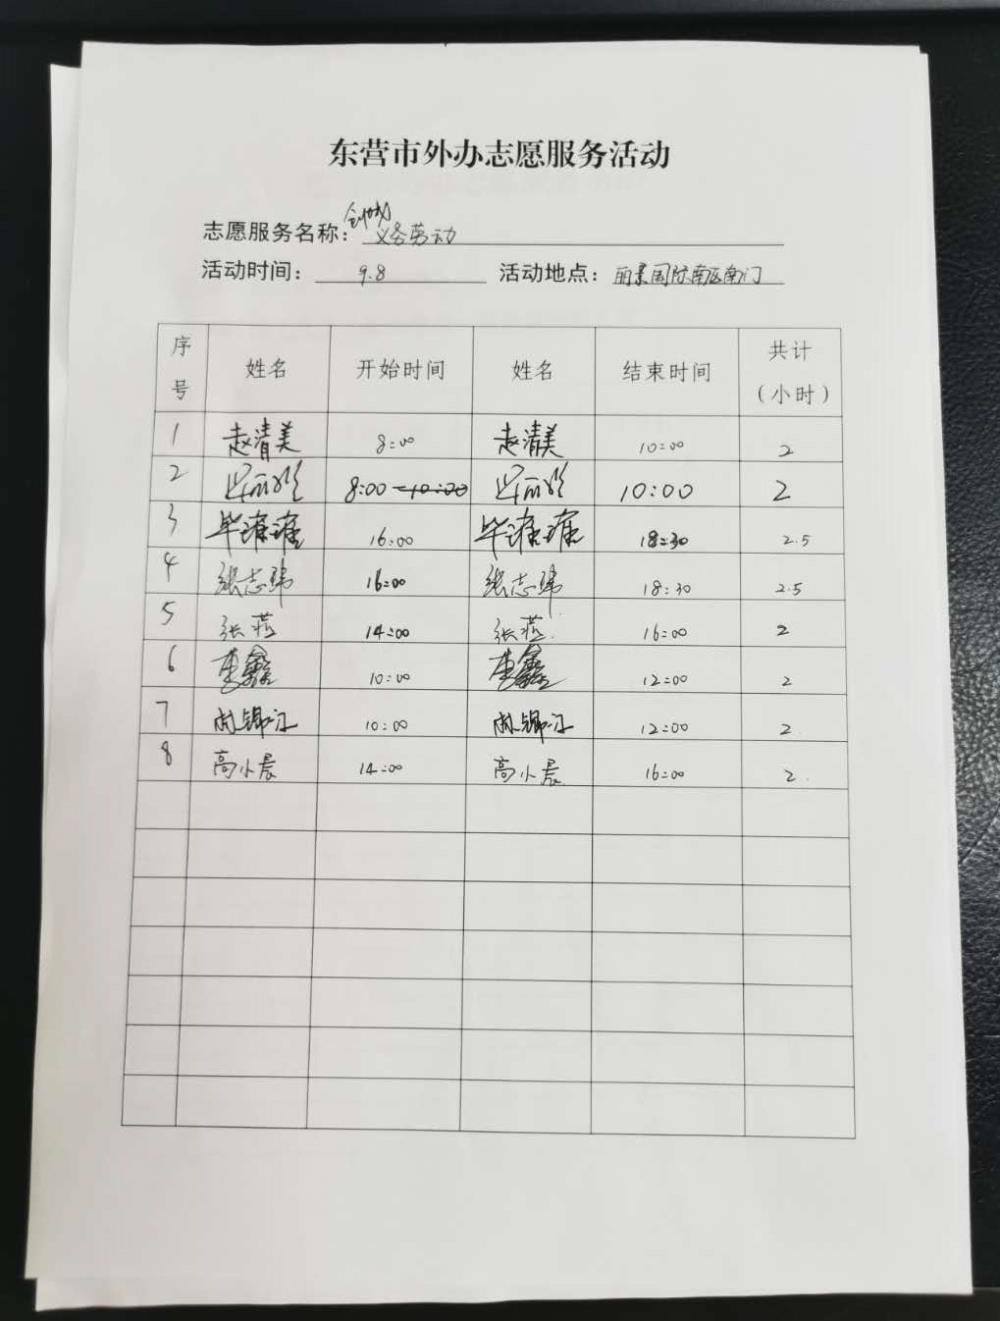 东营市外办志愿服务活动
志愿服务名称：创城义务劳动
活动时间：9.8 活动地点：丽景国际南区南门
序号 姓名 开始时间 姓名 结束时间 共计（小时）
1 赵清美 8:00 赵清美 10:00 2
2 8:00 10:00 10:00 2
3 16:00 18:30 2.5
4 张志玮 16:00 张志玮 18:30 2.5
5 张 14:00 张 16:00 2
6 李鑫 10:00 李鑫 12:00 2
7 10:00 12:00 2
8 高小晨 14:00 高小晨 16:00 2